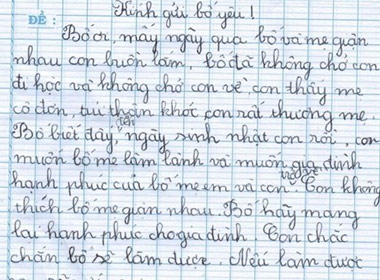 ĐỀ: Kính gửi bố yêu!
Bố ơi, mấy ngày qua bố và mẹ giận
nhau con buồn lắm, bố đã không chở con
đi học và không chở con về, con thấy mẹ
cô đơn, tủi thân khóc con rất thương mẹ.
Bố biết đấy, tới ngày sinh nhật con rồi, con
muốn bố mẹ làm lành và muốn gia đình
hạnh phúc của bố mẹ em và con. Con không
thích bố mẹ giận nhau. Bố hãy mang
lại hạnh phúc cho gia đình. Con chắc
chắn bố sẽ làm được. Nếu làm được